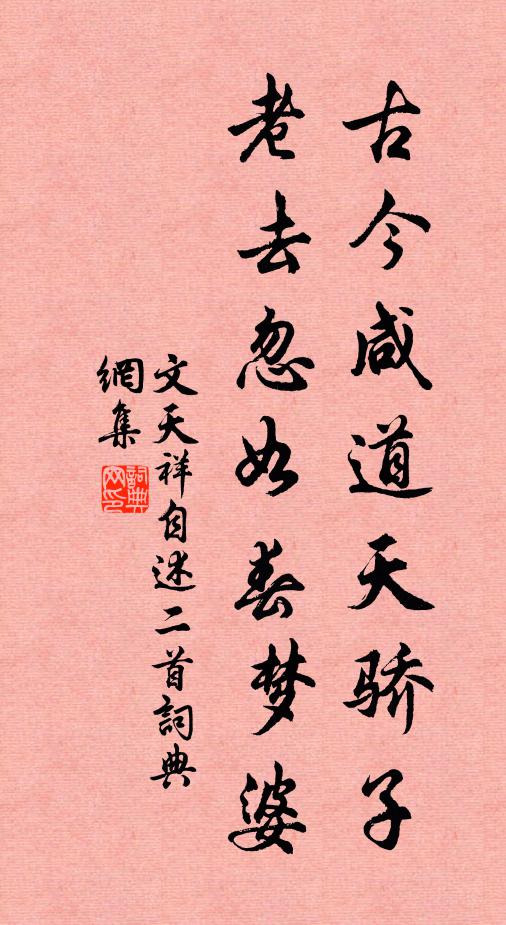 古今咸道天骄子
老去忽如春梦婆
文天祥自述二首詞典
網集
詞典网印